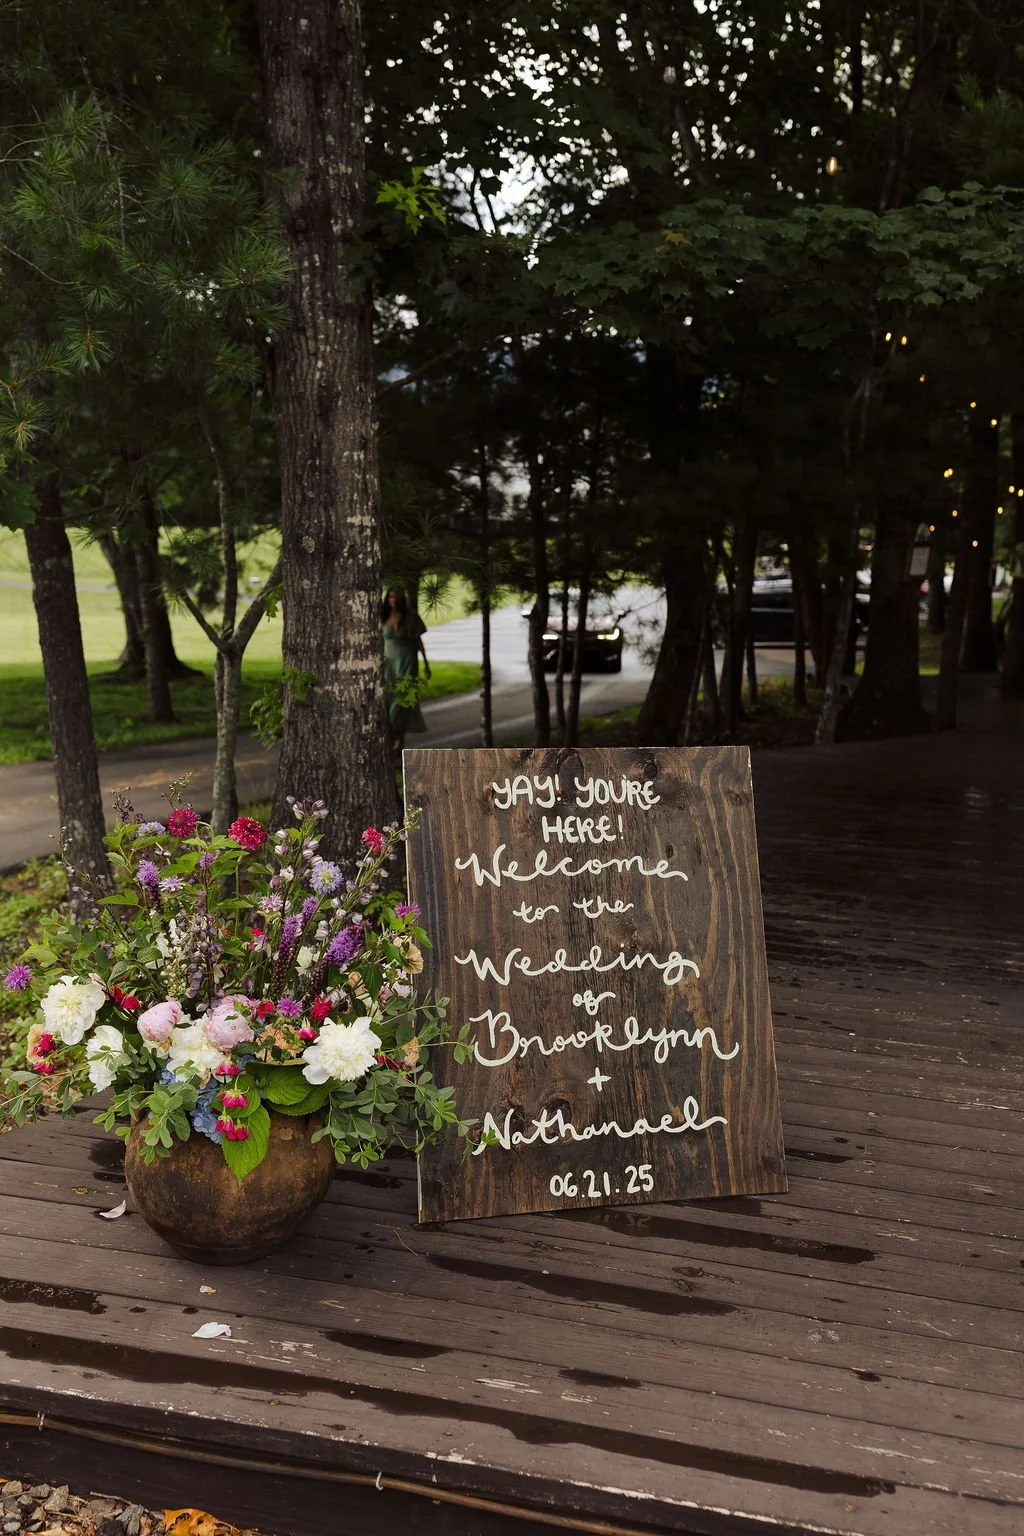 YAY! YOU'RE
HERE!
Welcome
to the
Wedding
of
Brooklynn
+
Nathanael
06.21.25